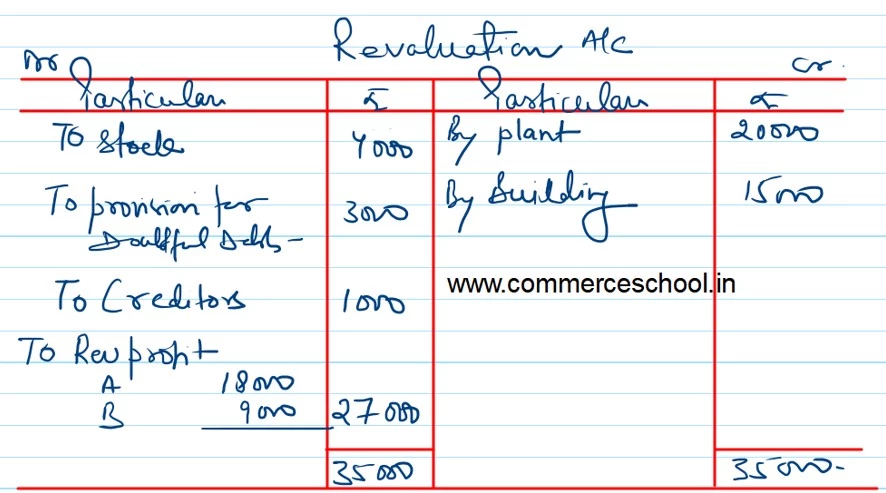 Revaluation A/c
Dr Cr.
Particulars ₹ Particulars ₹
To Stock 4000 By plant 20000
To provision for 3000 By Building 15000
Doubtful Debts -
www.commerceschool.in
To Creditors 1000
To Rev profit
A 18000
B 9000 27000
35000 35000-